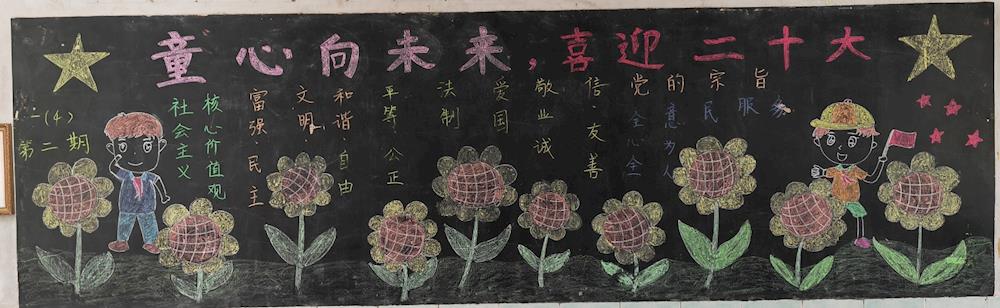 童心向未来，喜迎二十大
一(4)
第二期
社会主义
核心价值观
富强·民主
文明·
和谐 自由
平等·公正
法制
爱国
敬业诚
信·友善
党的宗旨
全心全
意为人
民服务